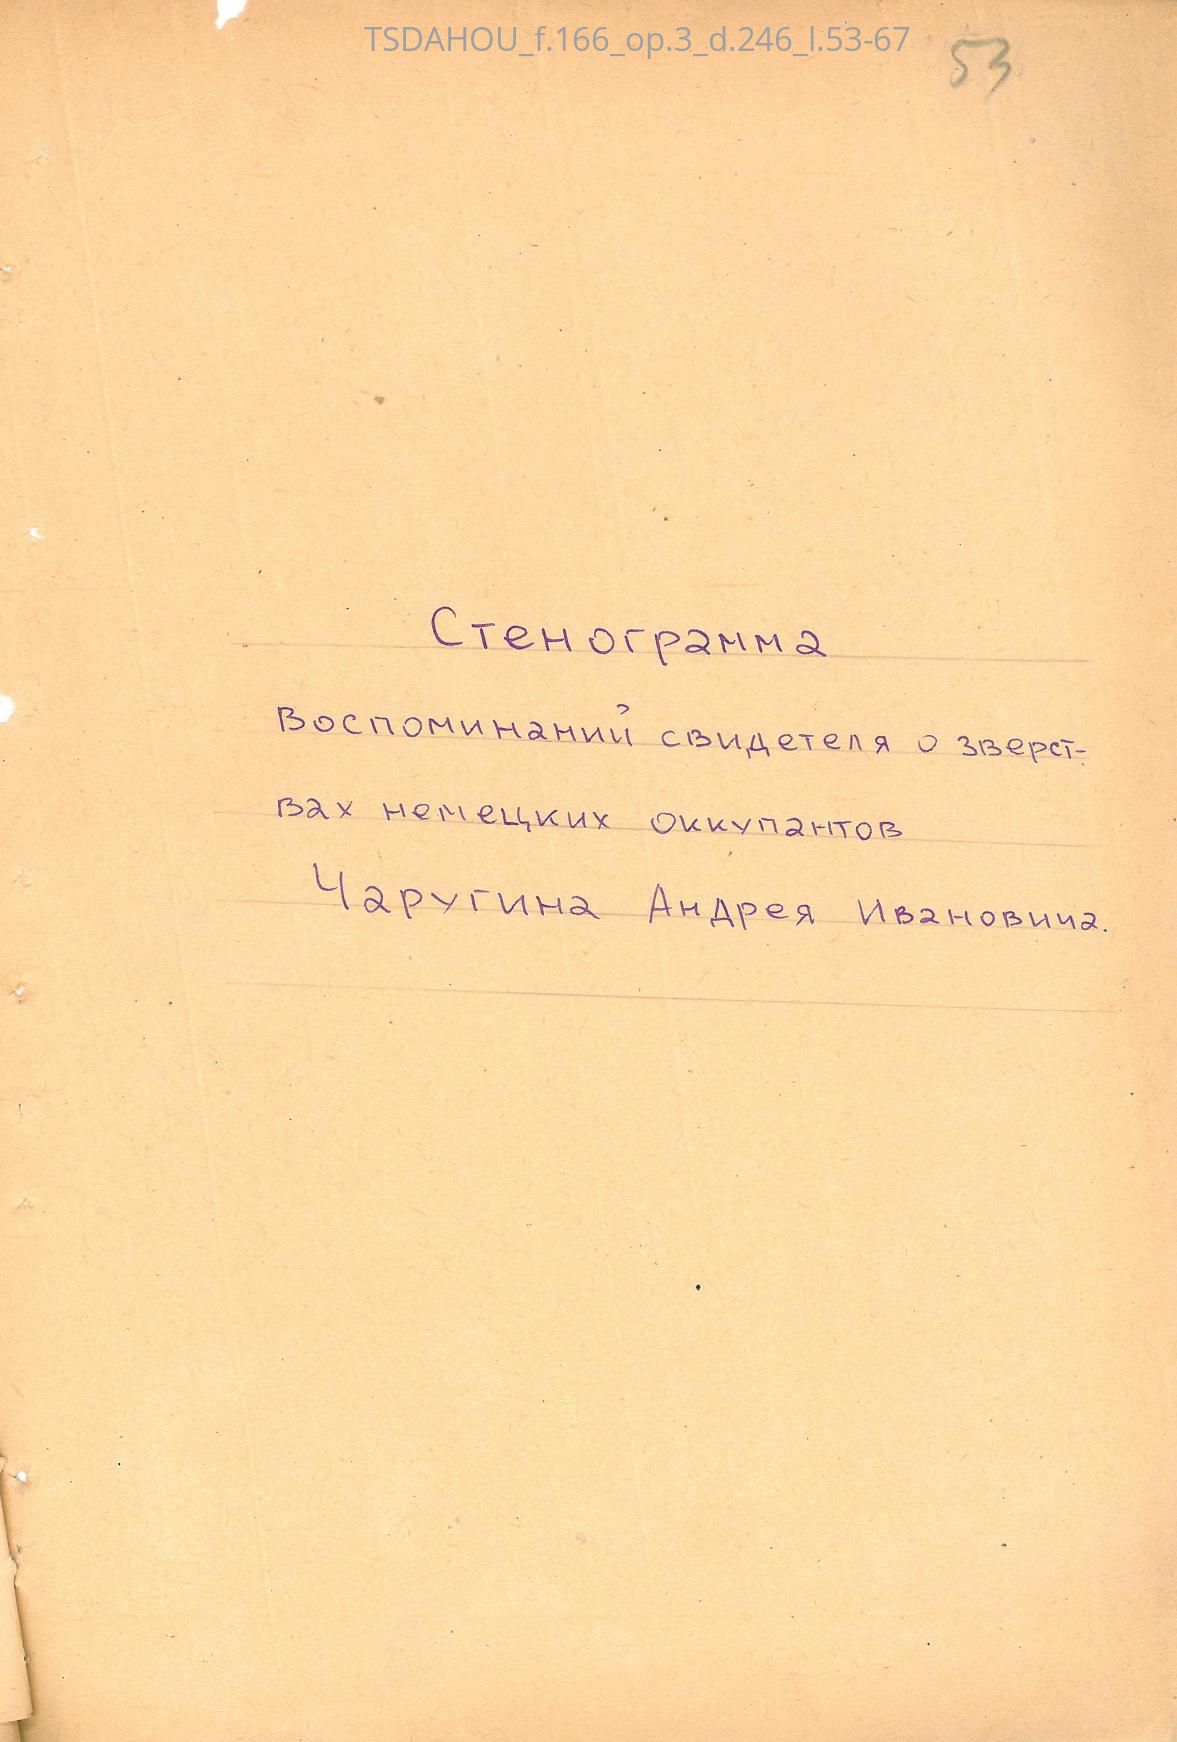 TSDAHOU_f.166_op.3_d.246_l.53-67
53
Стенограмма
Воспоминаний свидетеля о зверст-
вах немецких оккупантов
Чаругина Андрея Ивановича.